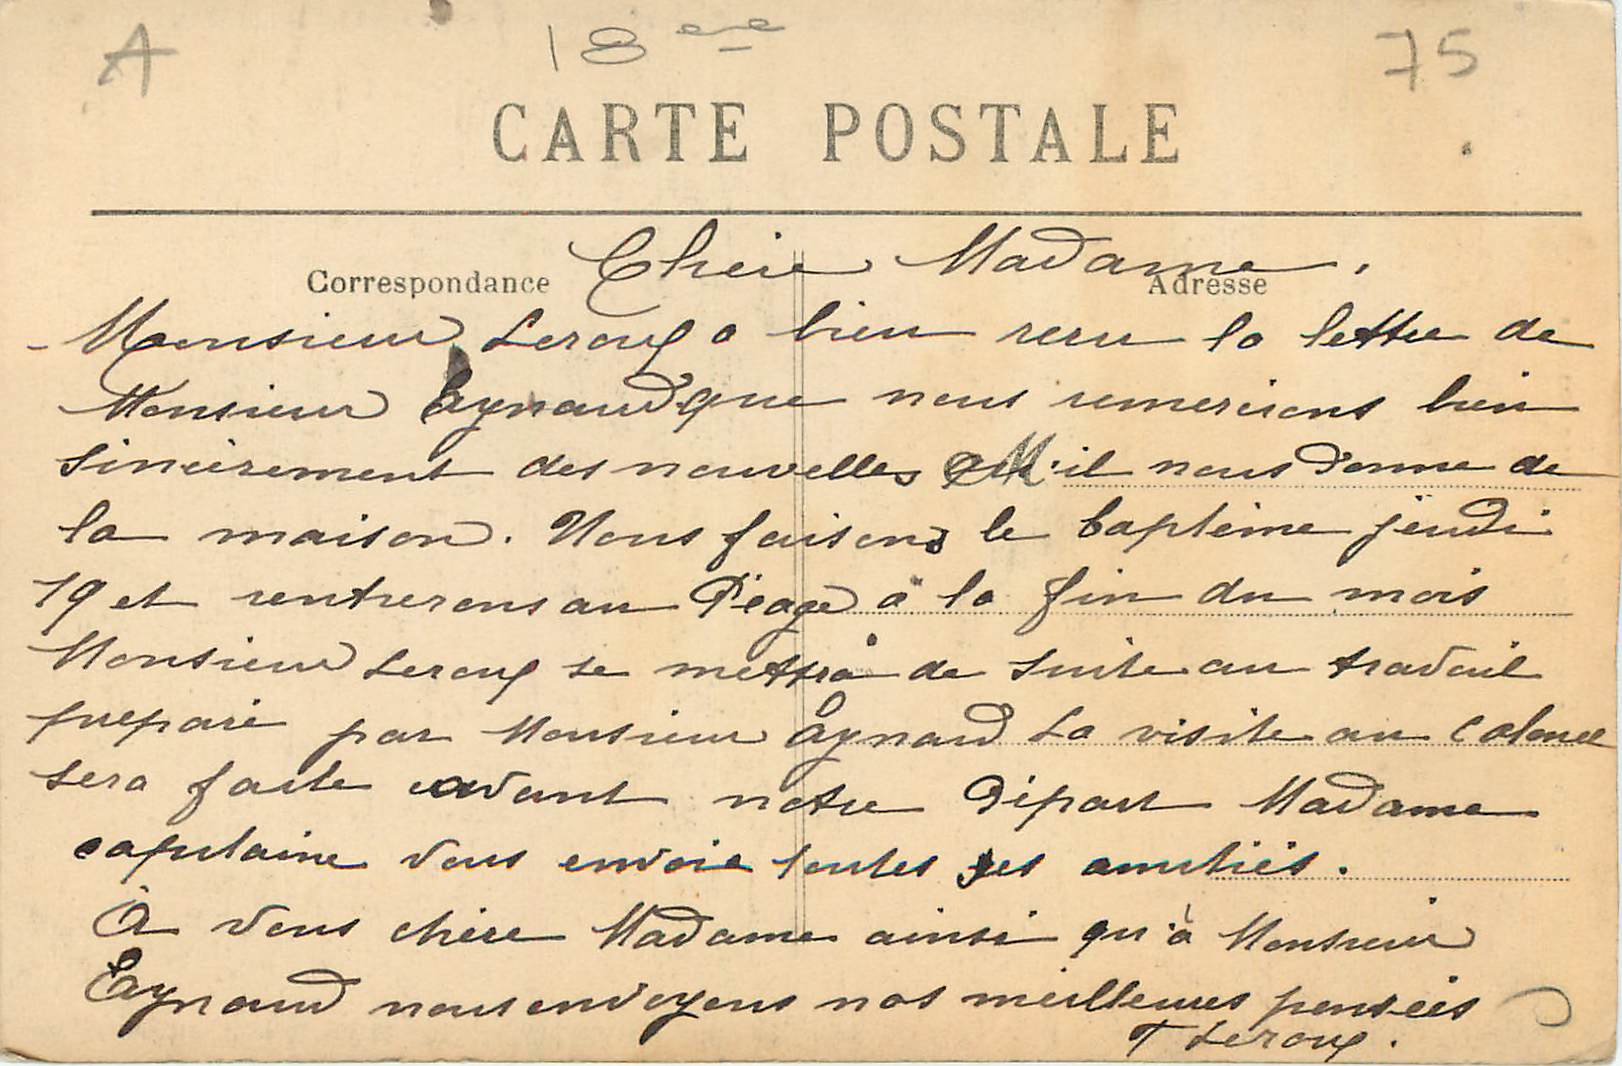 A 18ème 75
CARTE POSTALE
Correspondance
Adresse
Chère Madame,
Monsieur Leroux a bien reçu la lettre de
Monsieur Eynaud que nous remercions bien
sincèrement des nouvelles qu'il nous donne de
la maison. Nous faisons le baptème jeudi
19 et rentrerons au Péage à la fin du mois
Monsieur Leroux se mettra de suite au travail
preparé par Monsieur Eynaud La visite au Colonel
sera faite avant notre départ Madame
capitaine vous envoie toutes ses amitiés.
A vous chère Madame ainsi qu'à Monsieur
Eynaud nous envoyons nos meilleures pensées
Leroux.